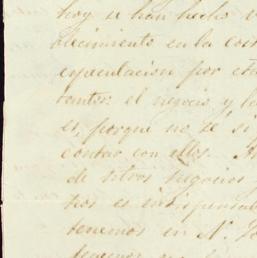 hoy se han hecho v
ocimiento en la cos
especulacion por eta
tantos: el negocio y l
es, porque no se si
contar con ellos. A
de otros negocios
hos es indispensabl
tenemos en N.
tenemos